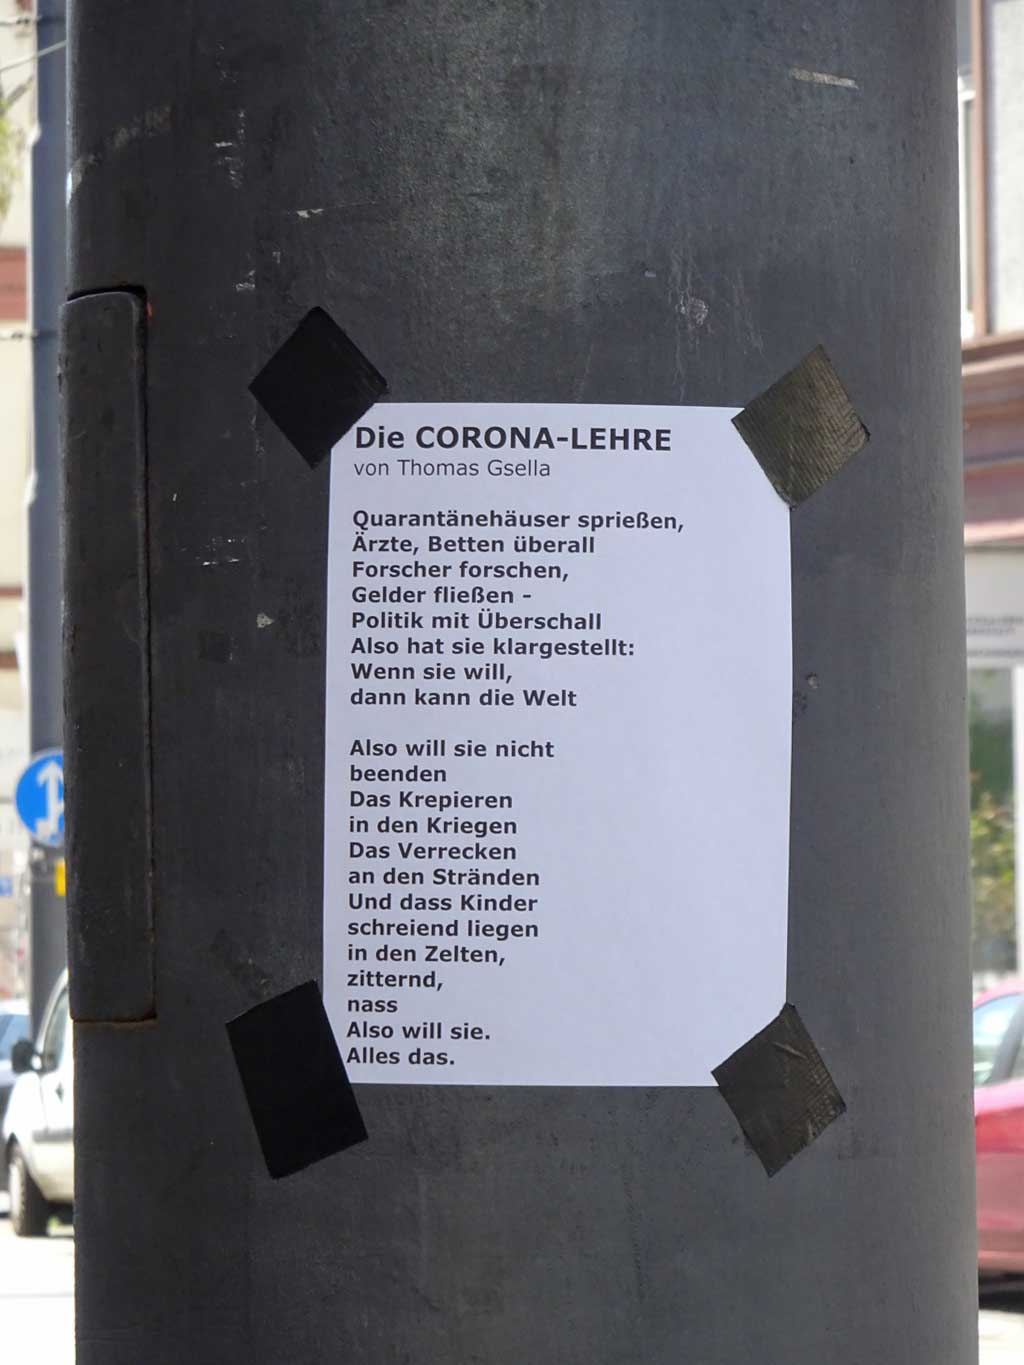 Die CORONA-LEHRE
von Thomas Gsella
Quarantänehäuser sprießen,
Ärzte, Betten überall
Forscher forschen,
Gelder fließen -
Politik mit Überschall
Also hat sie klargestellt:
Wenn sie will,
dann kann die Welt
Also will sie nicht
beenden
Das Krepieren
in den Kriegen
Das Verrecken
an den Stränden
Und dass Kinder
schreiend liegen
in den Zelten,
zitternd,
nass
Also will sie.
Alles das.